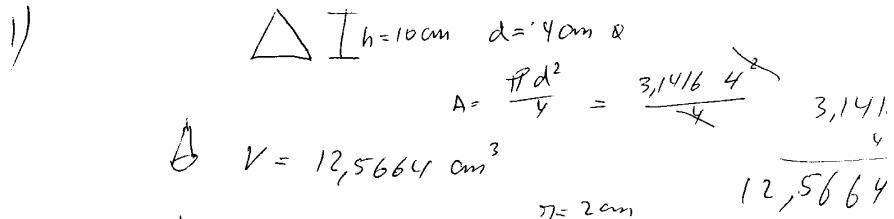 1) h=10cm d=4cm
A= πd²/4 = 3,1416 4²/4
3,141
4
V = 12,5664 cm³
12,5664
r= 2cm